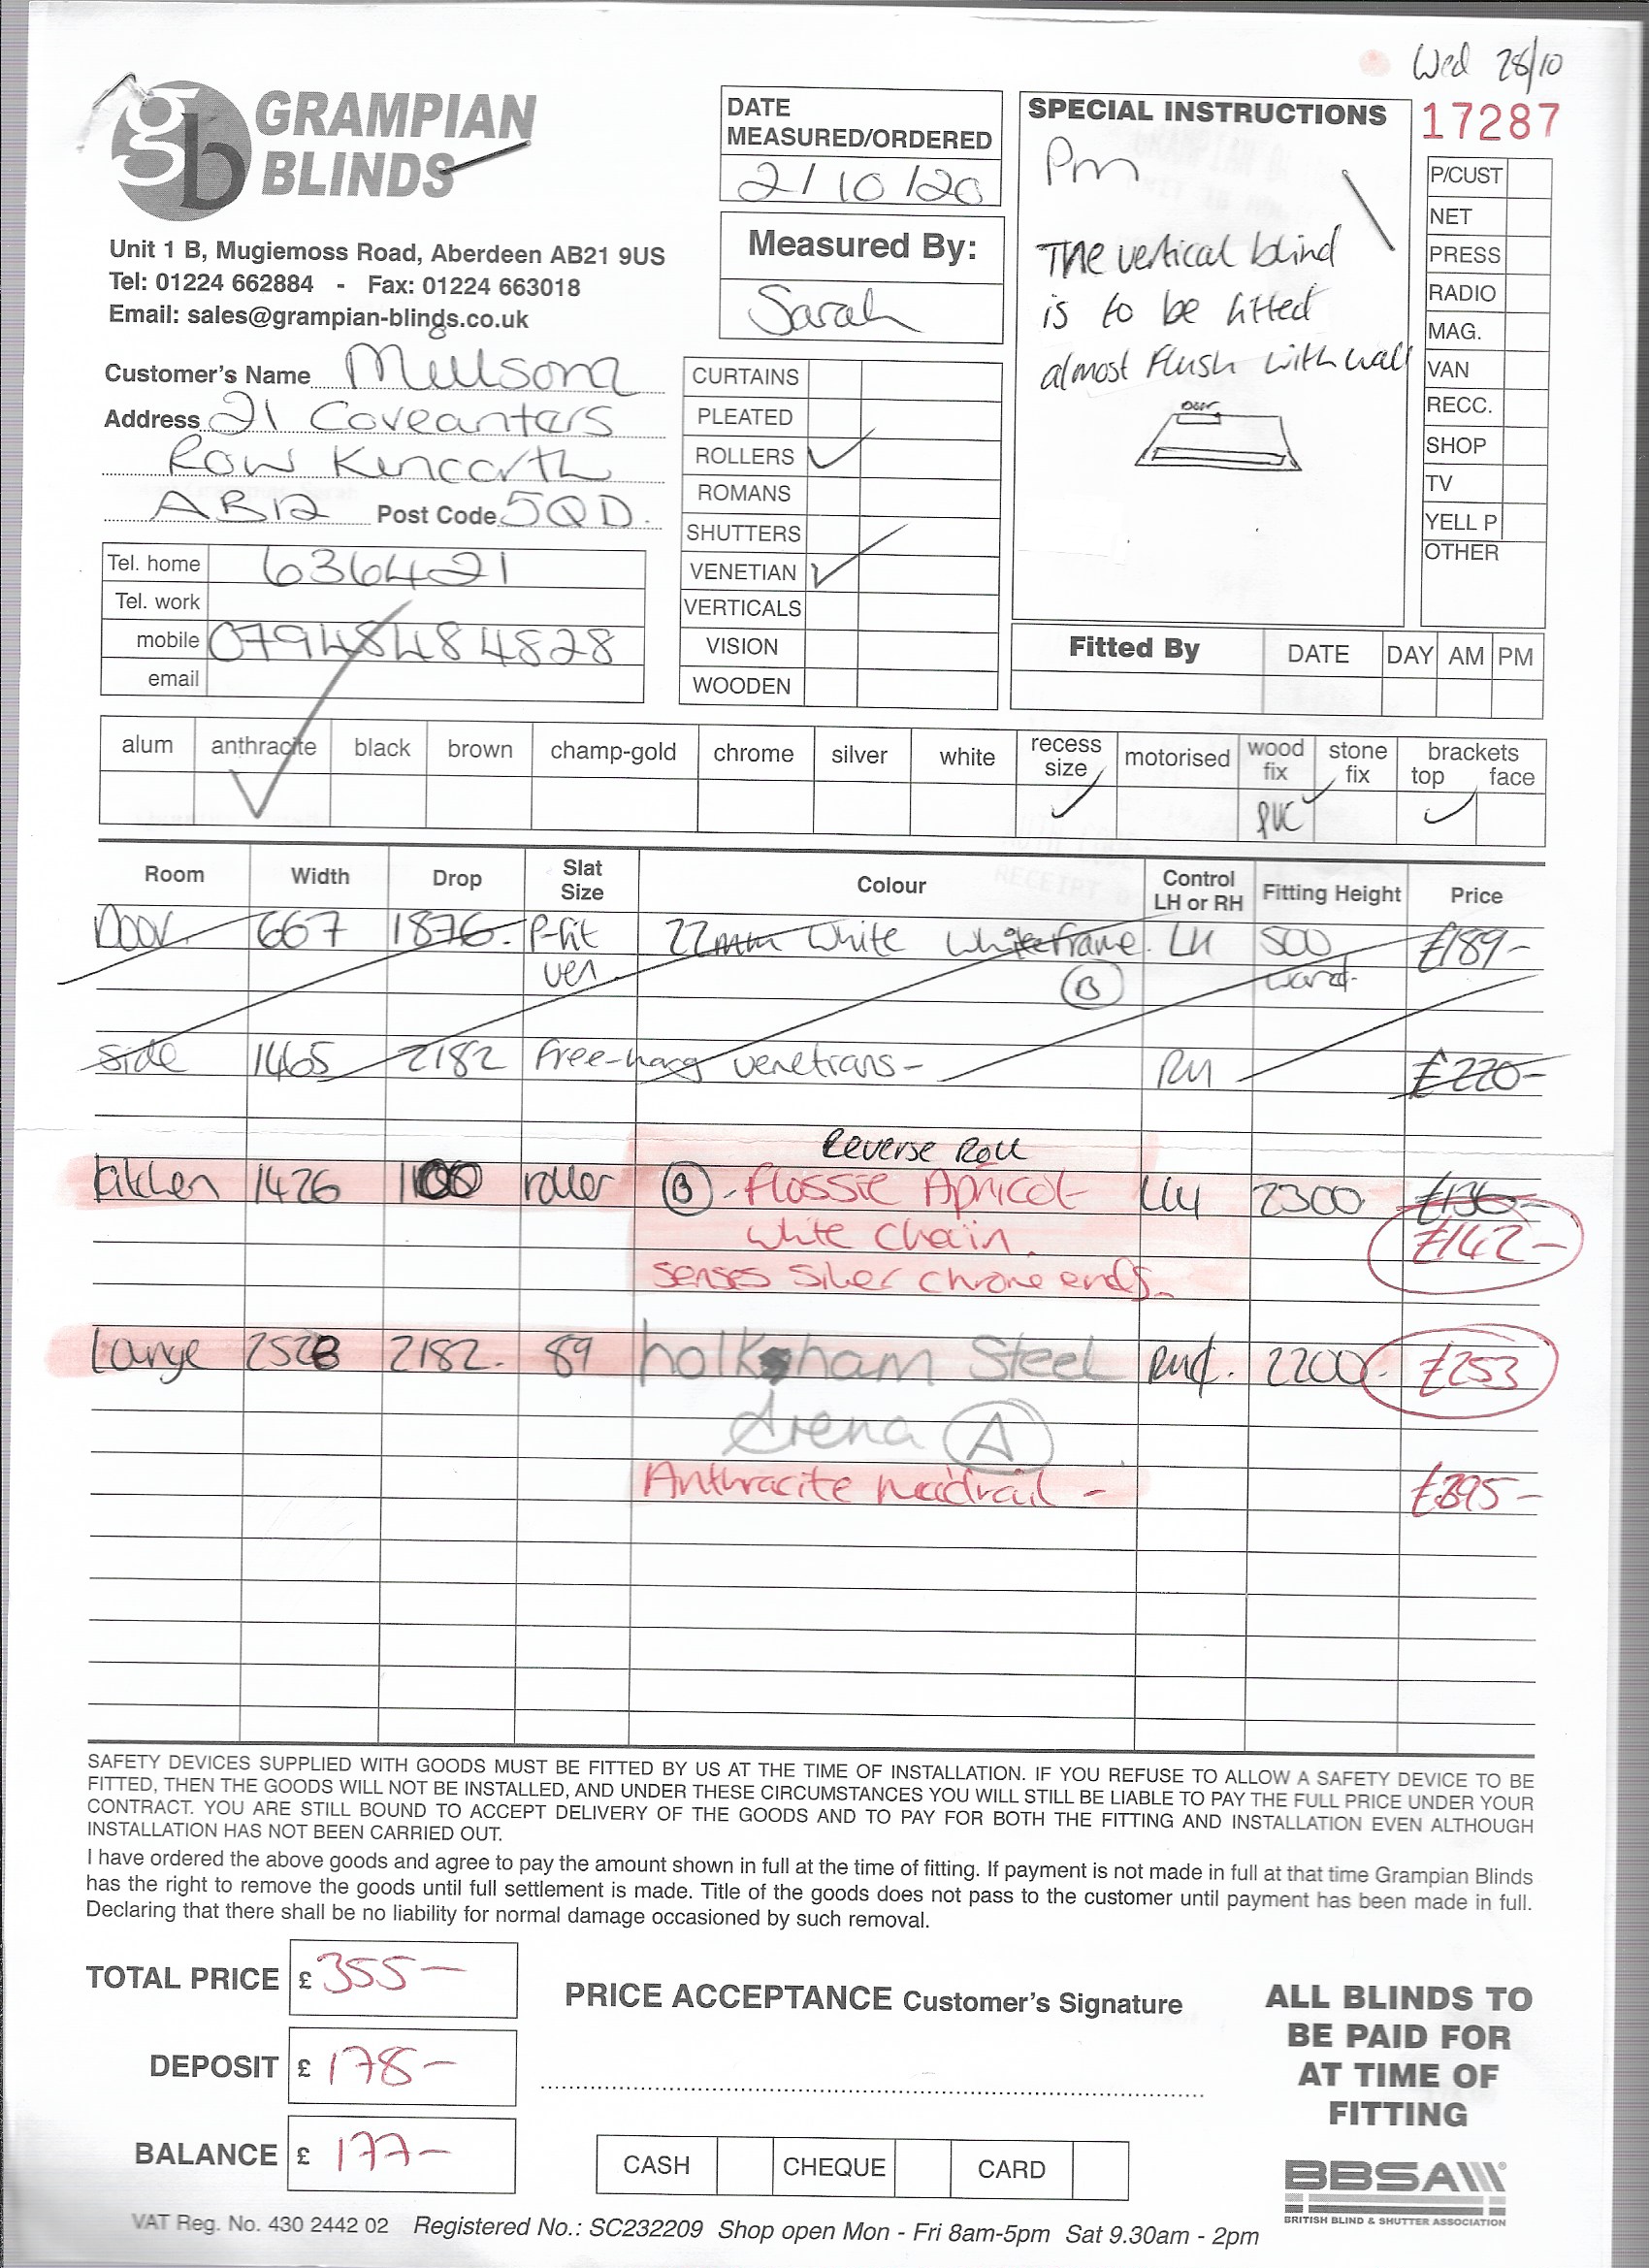 Wed 28/10
17287
gb GRAMPIAN
BLINDS
Unit 1 B, Mugiemoss Road, Aberdeen AB21 9US
Tel: 01224 662884 - Fax: 01224 663018
Email: sales@grampian-blinds.co.uk
Customer's Name
Address 21 Coveanters
Row Kincorth
AB12 Post Code 5QD.
Tel. home 636421
Tel. work
mobile 07948484828
email
DATE
MEASURED/ORDERED
2/10/20
Measured By:
Sarah
CURTAINS
PLEATED
ROLLERS ✓
ROMANS
SHUTTERS
VENETIAN ✓
VERTICALS
VISION
WOODEN
SPECIAL INSTRUCTIONS
Pm
The vertical blind
is to be fitted
almost flush with wall
Door
P/CUST
NET
PRESS
RADIO
MAG.
VAN
RECC.
SHOP
TV
YELL P
OTHER
Fitted By DATE DAY AM PM
alum anthracite black brown champ-gold chrome silver white recess size motorised wood fix stone fix brackets top face
✓ ✓ PVC ✓ ✓
Room Width Drop Slat Size Colour Control LH or RH Fitting Height Price
Door 667 1876- P-fit 22mm White White frame. LH 500 £189-
ven (B) wand.
side 1465 2182 free-hang venetians- RH £220-
Reverse Roll
kitchen 1426 1100 roller (B) - Flossie Apricot LH 2300 £136-
White Chain. £142-
senses silver chrome ends-
Lounge 2182. 89 holkham Steel 2200. £253
(A)
Anthracite headrail - £395-
SAFETY DEVICES SUPPLIED WITH GOODS MUST BE FITTED BY US AT THE TIME OF INSTALLATION. IF YOU REFUSE TO ALLOW A SAFETY DEVICE TO BE
FITTED, THEN THE GOODS WILL NOT BE INSTALLED, AND UNDER THESE CIRCUMSTANCES YOU WILL STILL BE LIABLE TO PAY THE FULL PRICE UNDER YOUR
CONTRACT. YOU ARE STILL BOUND TO ACCEPT DELIVERY OF THE GOODS AND TO PAY FOR BOTH THE FITTING AND INSTALLATION EVEN ALTHOUGH
INSTALLATION HAS NOT BEEN CARRIED OUT.
I have ordered the above goods and agree to pay the amount shown in full at the time of fitting. If payment is not made in full at that time Grampian Blinds
has the right to remove the goods until full settlement is made. Title of the goods does not pass to the customer until payment has been made in full.
Declaring that there shall be no liability for normal damage occasioned by such removal.
TOTAL PRICE £ 355-
DEPOSIT £ 178-
BALANCE £ 177-
PRICE ACCEPTANCE Customer's Signature
CASH CHEQUE CARD
ALL BLINDS TO
BE PAID FOR
AT TIME OF
FITTING
BBSA
BRITISH BLIND & SHUTTER ASSOCIATION
VAT Reg. No. 430 2442 02 Registered No.: SC232209 Shop open Mon - Fri 8am-5pm Sat 9.30am - 2pm